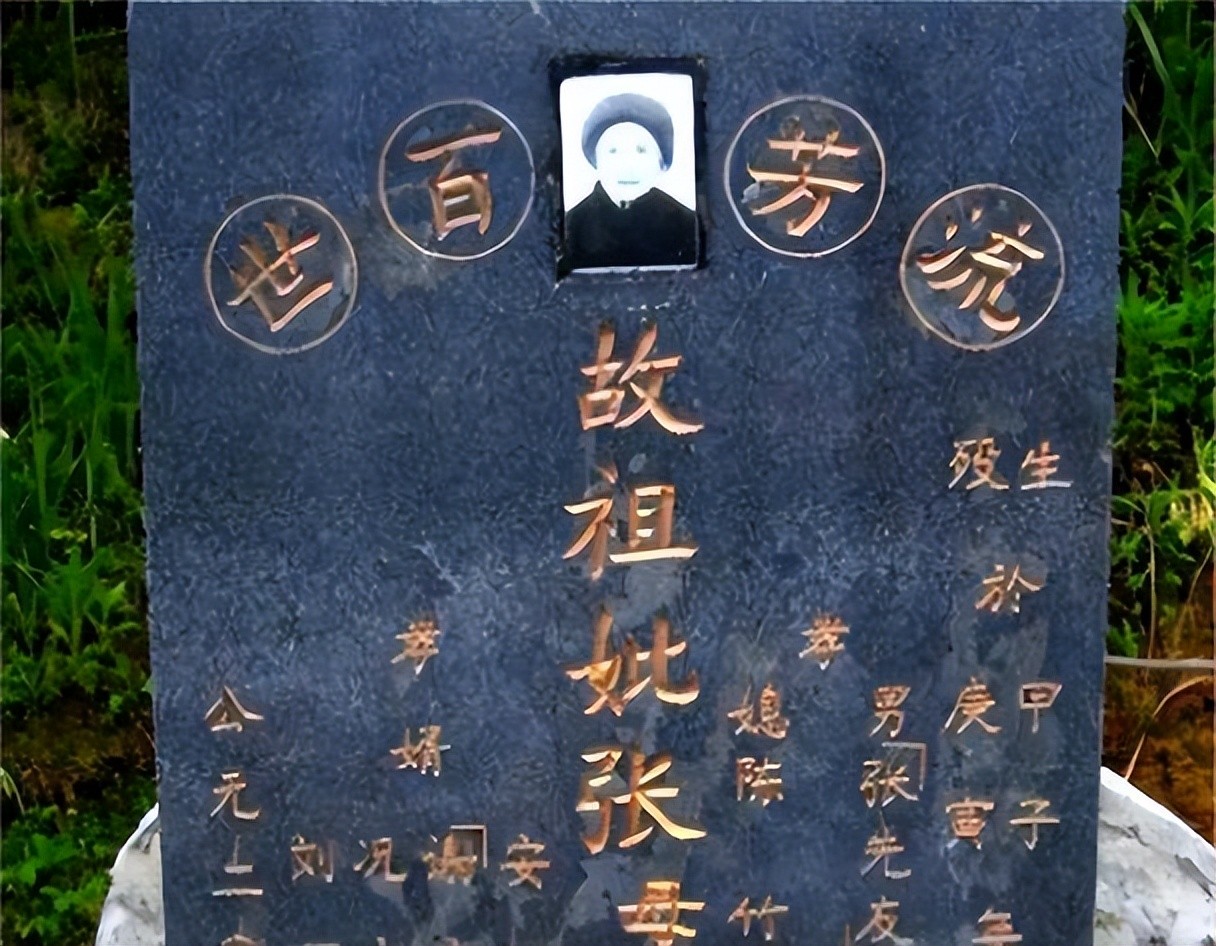 流芳百世
生殁
於
甲子
庚寅年
孝
男张先友
媳陈竹
故祖妣张母
孝婿
安
况
刘
公元二